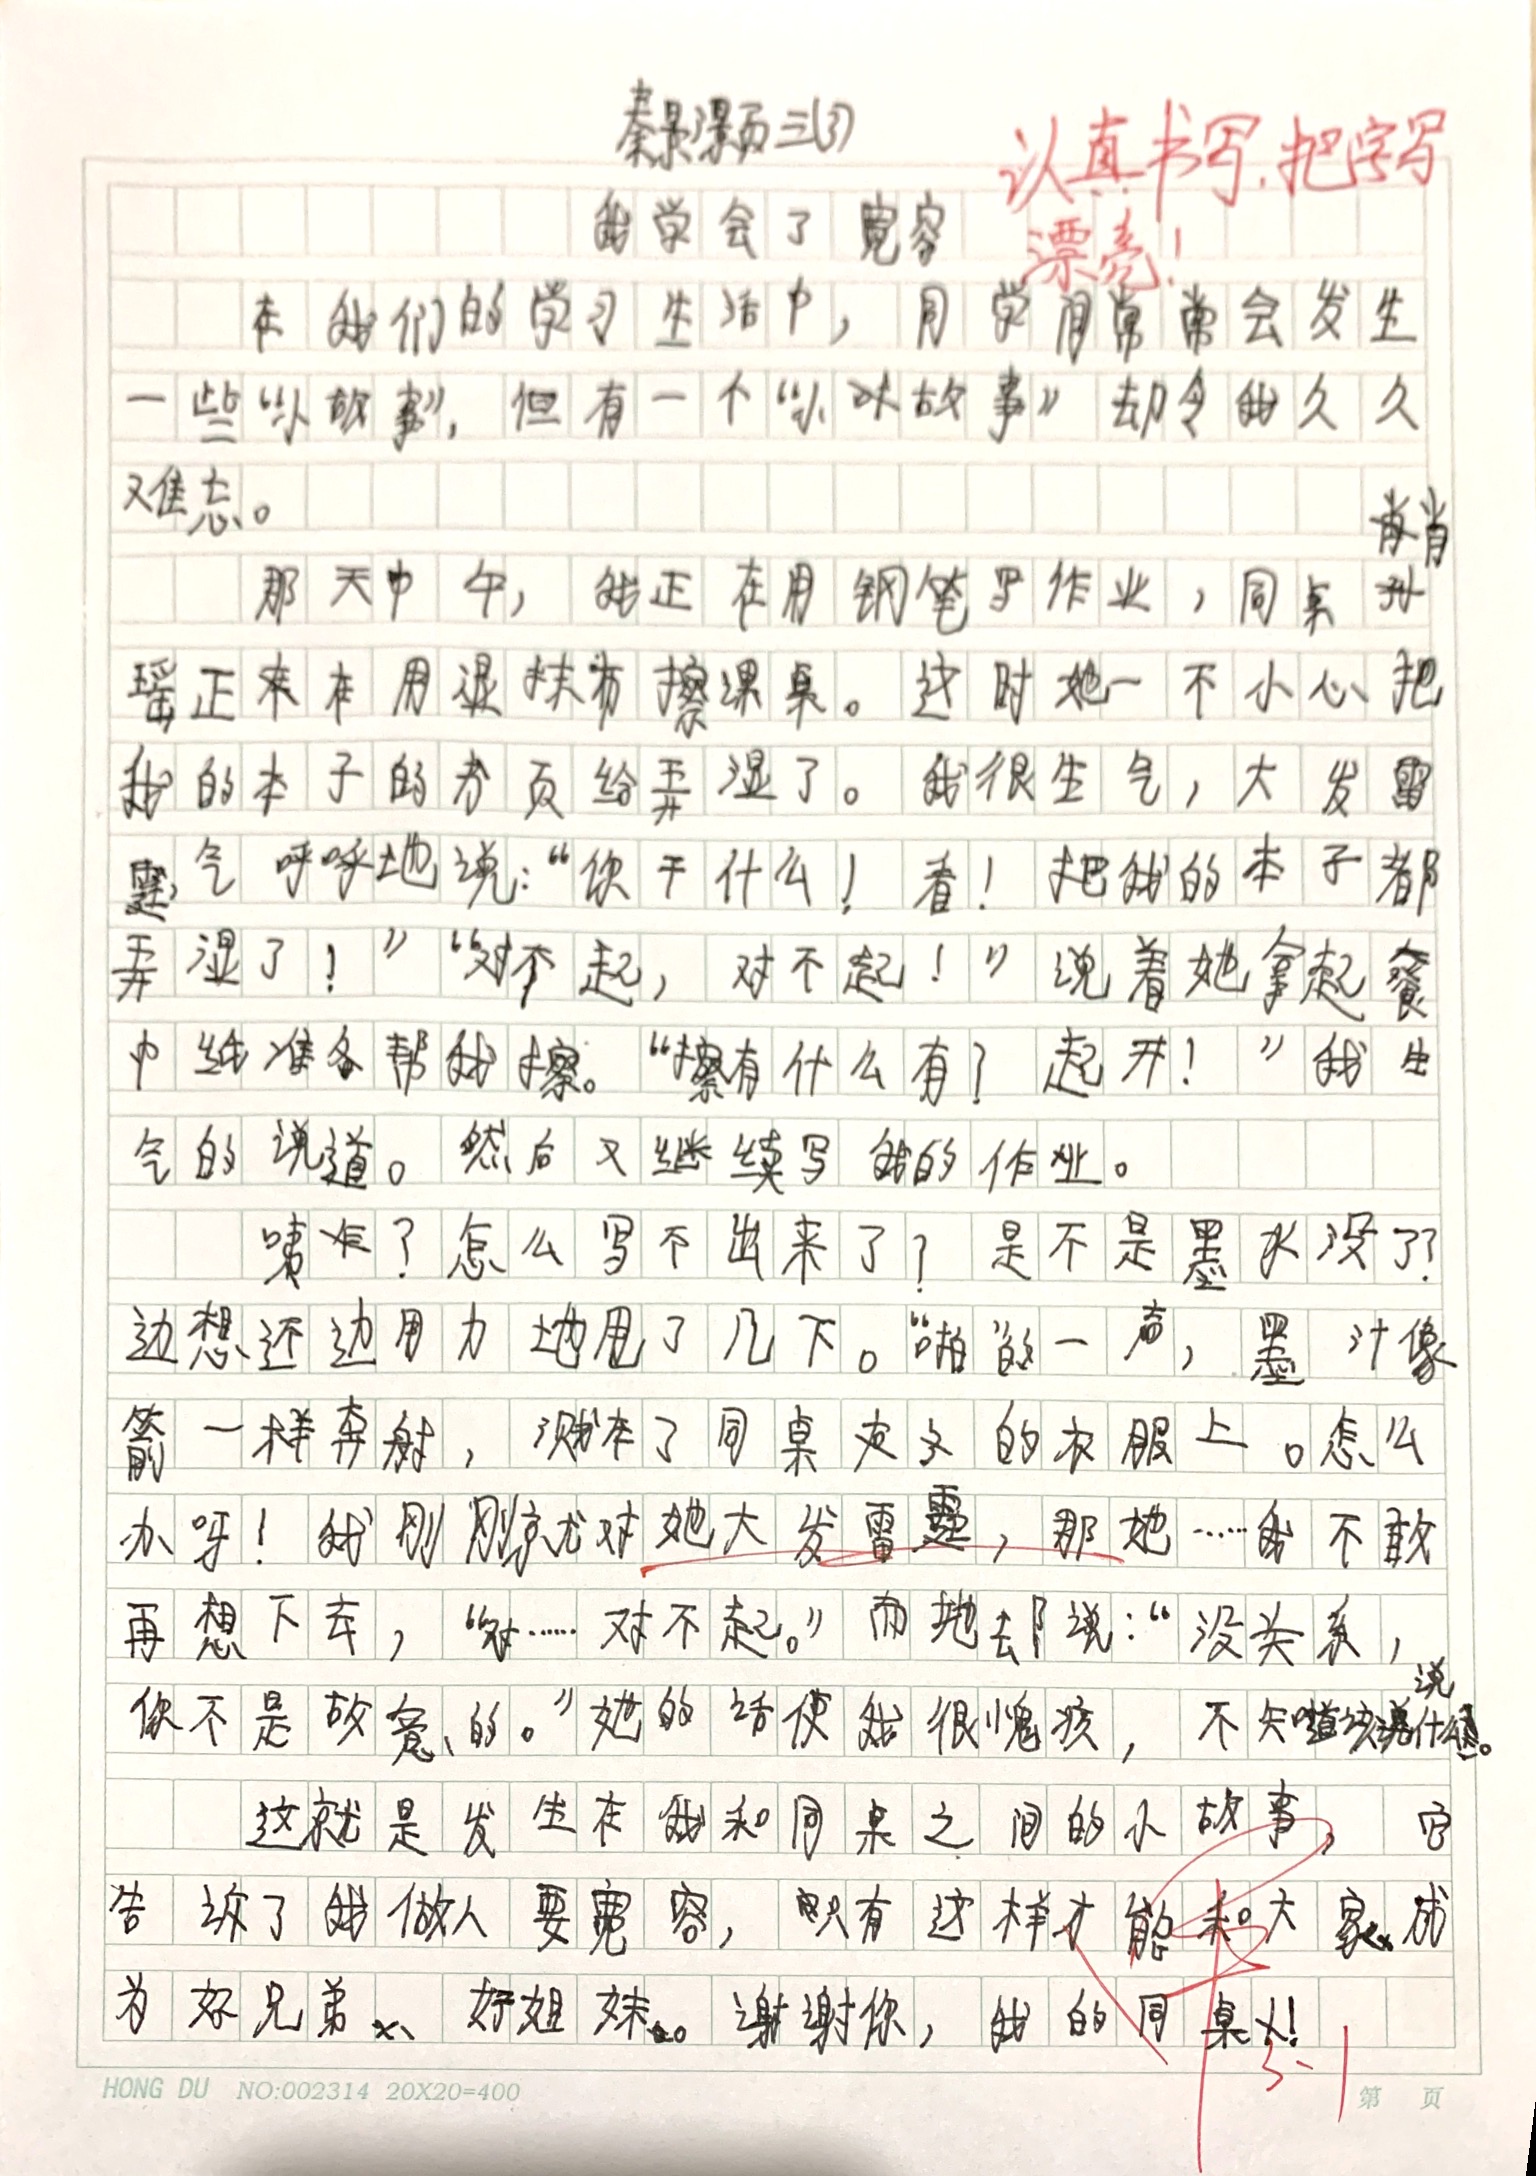 秦景灏 三(3)
认真书写,把字写
漂亮!
我学会了宽容
在我们的学习生活中,同学间常常会发生
一些“小故事”,但有一个“小故事”却令我久久
难忘。
肖
那天中午,我正在用钢笔写作业,同桌
瑶正在用湿抹布擦课桌。这时她一不小心把
我的本子的页给弄湿了。我很生气,大发雷
霆,气呼呼地说:“你干什么!看!把我的本子都
弄湿了!”“对不起,对不起!”说着她拿起餐
巾纸准备帮我擦。“擦有什么有?起开!”我生
气的说道。然后又继续写我的作业。
咦?怎么写不出来了?是不是墨水没了?
边想还边用力地甩了几下。“啪”的一声,墨汁像
箭一样奔射,溅在了同桌的衣服上。怎么
办呀!我刚刚就对她大发雷霆,那她……我不敢
再想下去,“对……对不起。”而她却说:“没关系,
说
你不是故意的。”她的话使我很愧疚,不知道该什么。
这就是发生在我和同桌之间的小故事,它
告诉了我做人要宽容,只有这样才能和大家成
为好兄弟、好姐妹。谢谢你,我的同桌!
3-1
HONG DU NO:002314 20X20=400
第 页